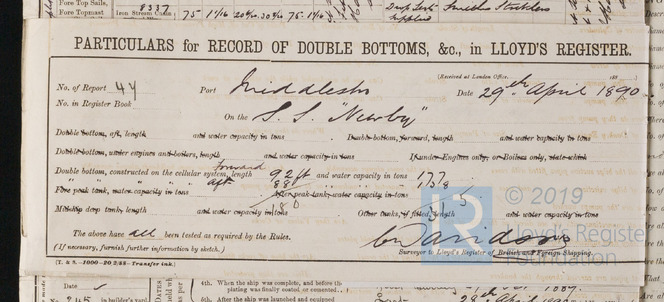 Fore Top Sails,
Fore Topmast
Iron Stream Chain
75 1 1/16
75 1 1/16
PARTICULARS for RECORD OF DOUBLE BOTTOMS, &c., in LLOYD'S REGISTER.
(Received at London Office, 188 )
No. of Report 44 Port Middlesbro Date 29th April 1890
No. in Register Book
On the S.S. "Newby"
Double bottom, aft, length and water capacity in tons Double bottom, forward, length and water capacity in tons
Double bottom, under engines and boilers, length and water capacity in tons If under Engines only, or Boilers only, state which
forward
Double bottom, constructed on the cellular system, length 92 ft and water capacity in tons 177
" " " " aft 88 " " " " 138
Fore peak tank, water capacity in tons After peak tank, water capacity in tons
180 315
Midship deep tank, length and water capacity in tons Other tanks, if fitted, length and water capacity in tons
The above have all been tested as required by the Rules.
(If necessary, furnish further information by sketch.)
Davidson
Surveyor to Lloyd's Register of British and Foreign Shipping.
(T. & S.—1000—20/2/88—Transfer ink.)
© 2019
Lloyd's Register
Foundation
4th. When the ship was complete, and before the
plating was finally coated, or cemented
6th. After the ship was launched and equipped